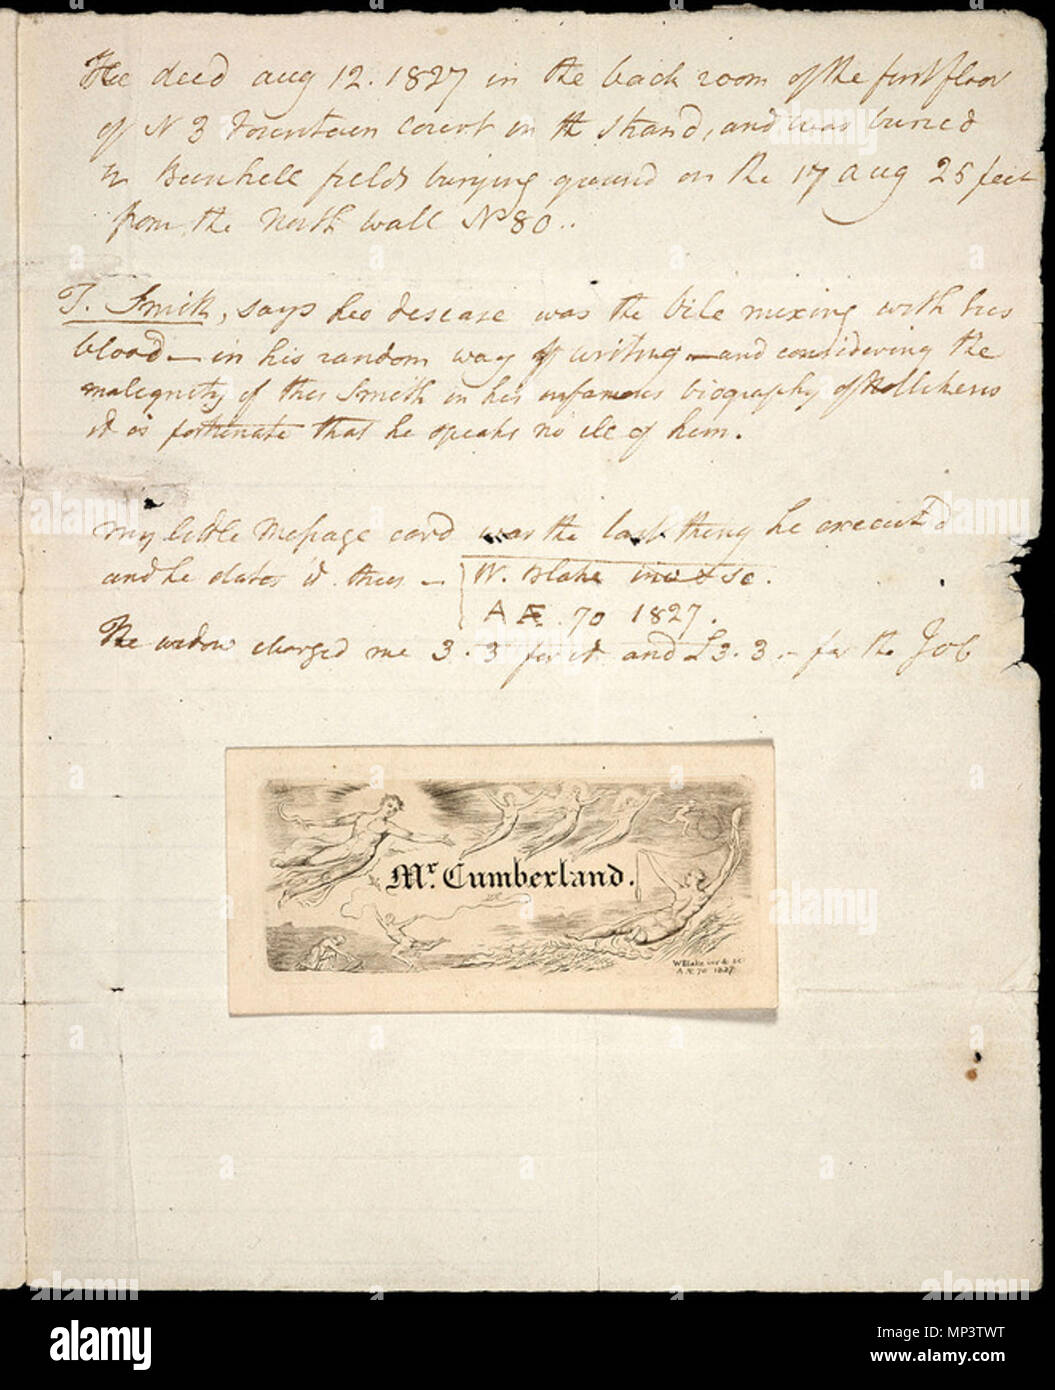 He died aug 12. 1827 in the back room of the first floor
of N 3 Fountain Court in the Strand, and was buried
in Bunhill fields burying ground on the 17 aug 25 feet
from the North wall No 80..
T. Smith, says his disease was the bile mixing with his
blood — in his random way of writing — and considering the
malignity of this Smith in his infamous biography of Nollikens
it is fortunate that he speaks no ill of him.
my little Message card was the last thing he executed
and he dates it thus — W. Blake inv & sc.
A Æ. 70 1827.
The widow charged me 3.3 for it and £3.3. — for the Job
Mr. Cumberland.
W Blake inv & sc
A Æ 70 1827
alamy
Image ID: MP3TWT
www.alamy.com